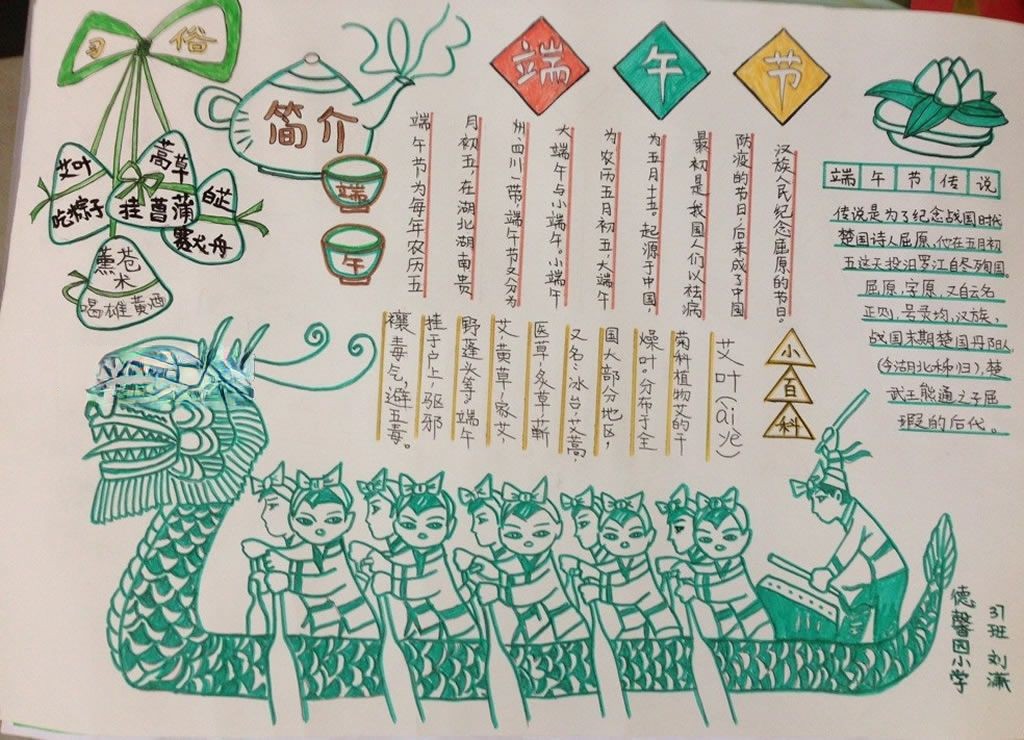 端午节
习俗
艾叶
吃粽子
蒿草
挂菖蒲
白芷
赛龙舟
苍术
喝雄黄酒
简介
端
午
端午节为每年农历五
月初五,在湖北湖南贵
州四川一带,端午节又分为
大端午与小端午。小端午
为农历五月初五,大端午
为五月十五。起源于中国,
最初是我国人们以祛病
防疫的节日,后来成了中国
汉族人民纪念屈原的节日。
小百科
艾叶(ài yè)
菊科植物艾的干
燥叶。分布于全
国大部分地区,
又名:冰台,艾蒿,
医草,灸草,蕲
艾,黄草,家艾,
野蓬头等。端午
挂于户上,驱邪
禳毒气,避五毒。
端午节传说
传说是为了纪念战国时代
楚国诗人屈原,他在五月初
五这天投汨罗江自尽殉国。
屈原,字原,又自云名
正则,号灵均,汉族,
战国末期楚国丹阳人
(今湖北秭归),楚
武王熊通之子屈
瑕的后代。
德馨园小学
37班 刘潇